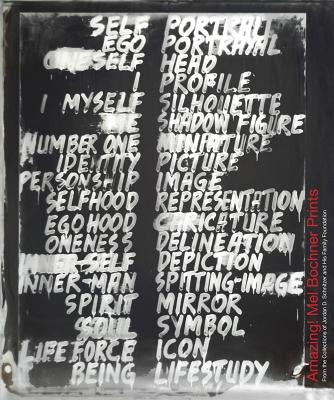 SELF PORTRAIT
EGO PORTRAYAL
ONESELF HEAD
I PROFILE
I MYSELF SILHOUETTE
ME SHADOW FIGURE
NUMBER ONE MINIATURE
IDENTITY PICTURE
PERSONSHIP IMAGE
SELFHOOD REPRESENTATION
EGOHOOD CARICATURE
ONENESS DELINEATION
INNER-SELF DEPICTION
INNER-MAN SPITTING-IMAGE
SPIRIT MIRROR
SOUL SYMBOL
LIFE FORCE ICON
BEING LIFESTUDY
Amazing! Mel Bochner Prints
From the Collections of Jordan D. Schnitzer and His Family Foundation